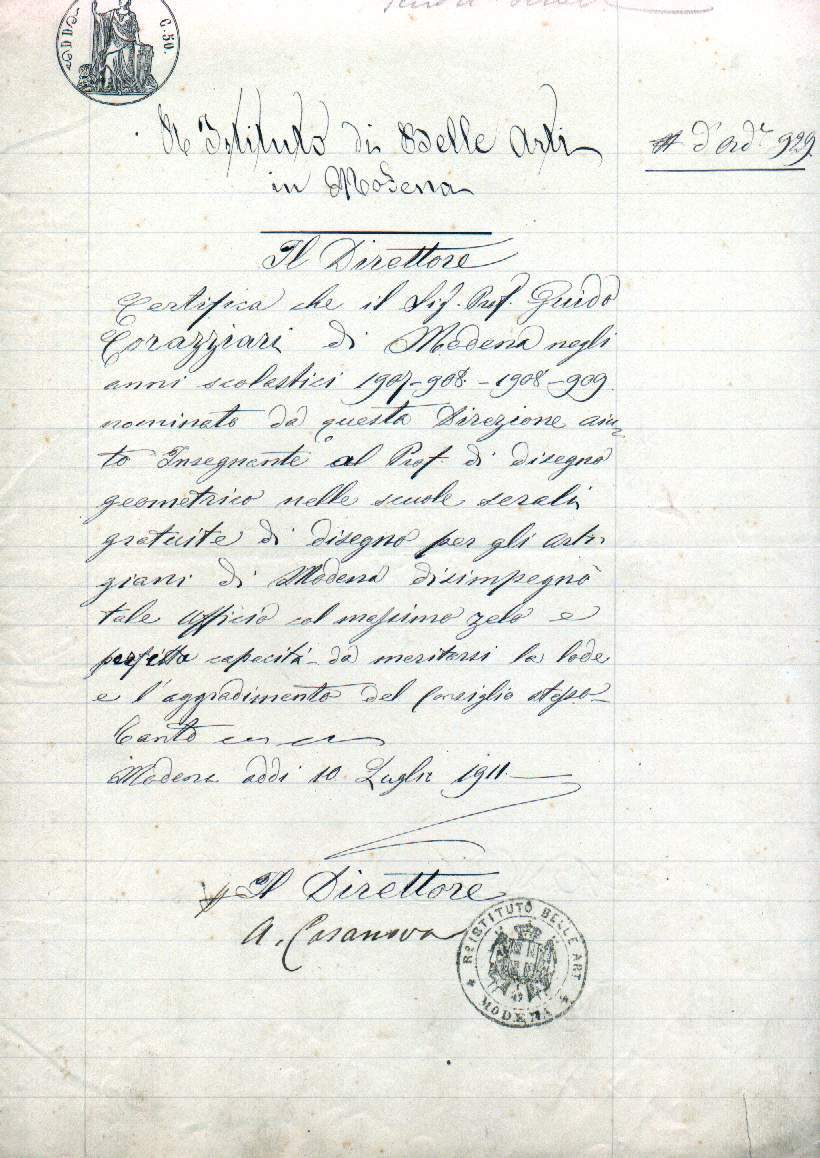 C. 50.
R Istituto di Belle Arti
in Modena
N d'ord. 929.
Il Direttore
Certifica che il Sig. Prof. Guido
Corazziari di Modena negli
anni scolastici 1907-908 - 1908-909
nominato da questa Direzione aiu-
to Insegnante al Prof. di disegno
geometrico nelle scuole serali
gratuite di disegno per gli arti
giani di Modena disimpegnò
tale Officio col massimo zelo e
perfetta capacità da meritarsi la lode
e l'aggradimento del Consiglio stesso
Tanto
Modena addi 10 Luglio 1911
Il Direttore
A. Casanova
Ro ISTITUTO BELLE ARTI
MODENA